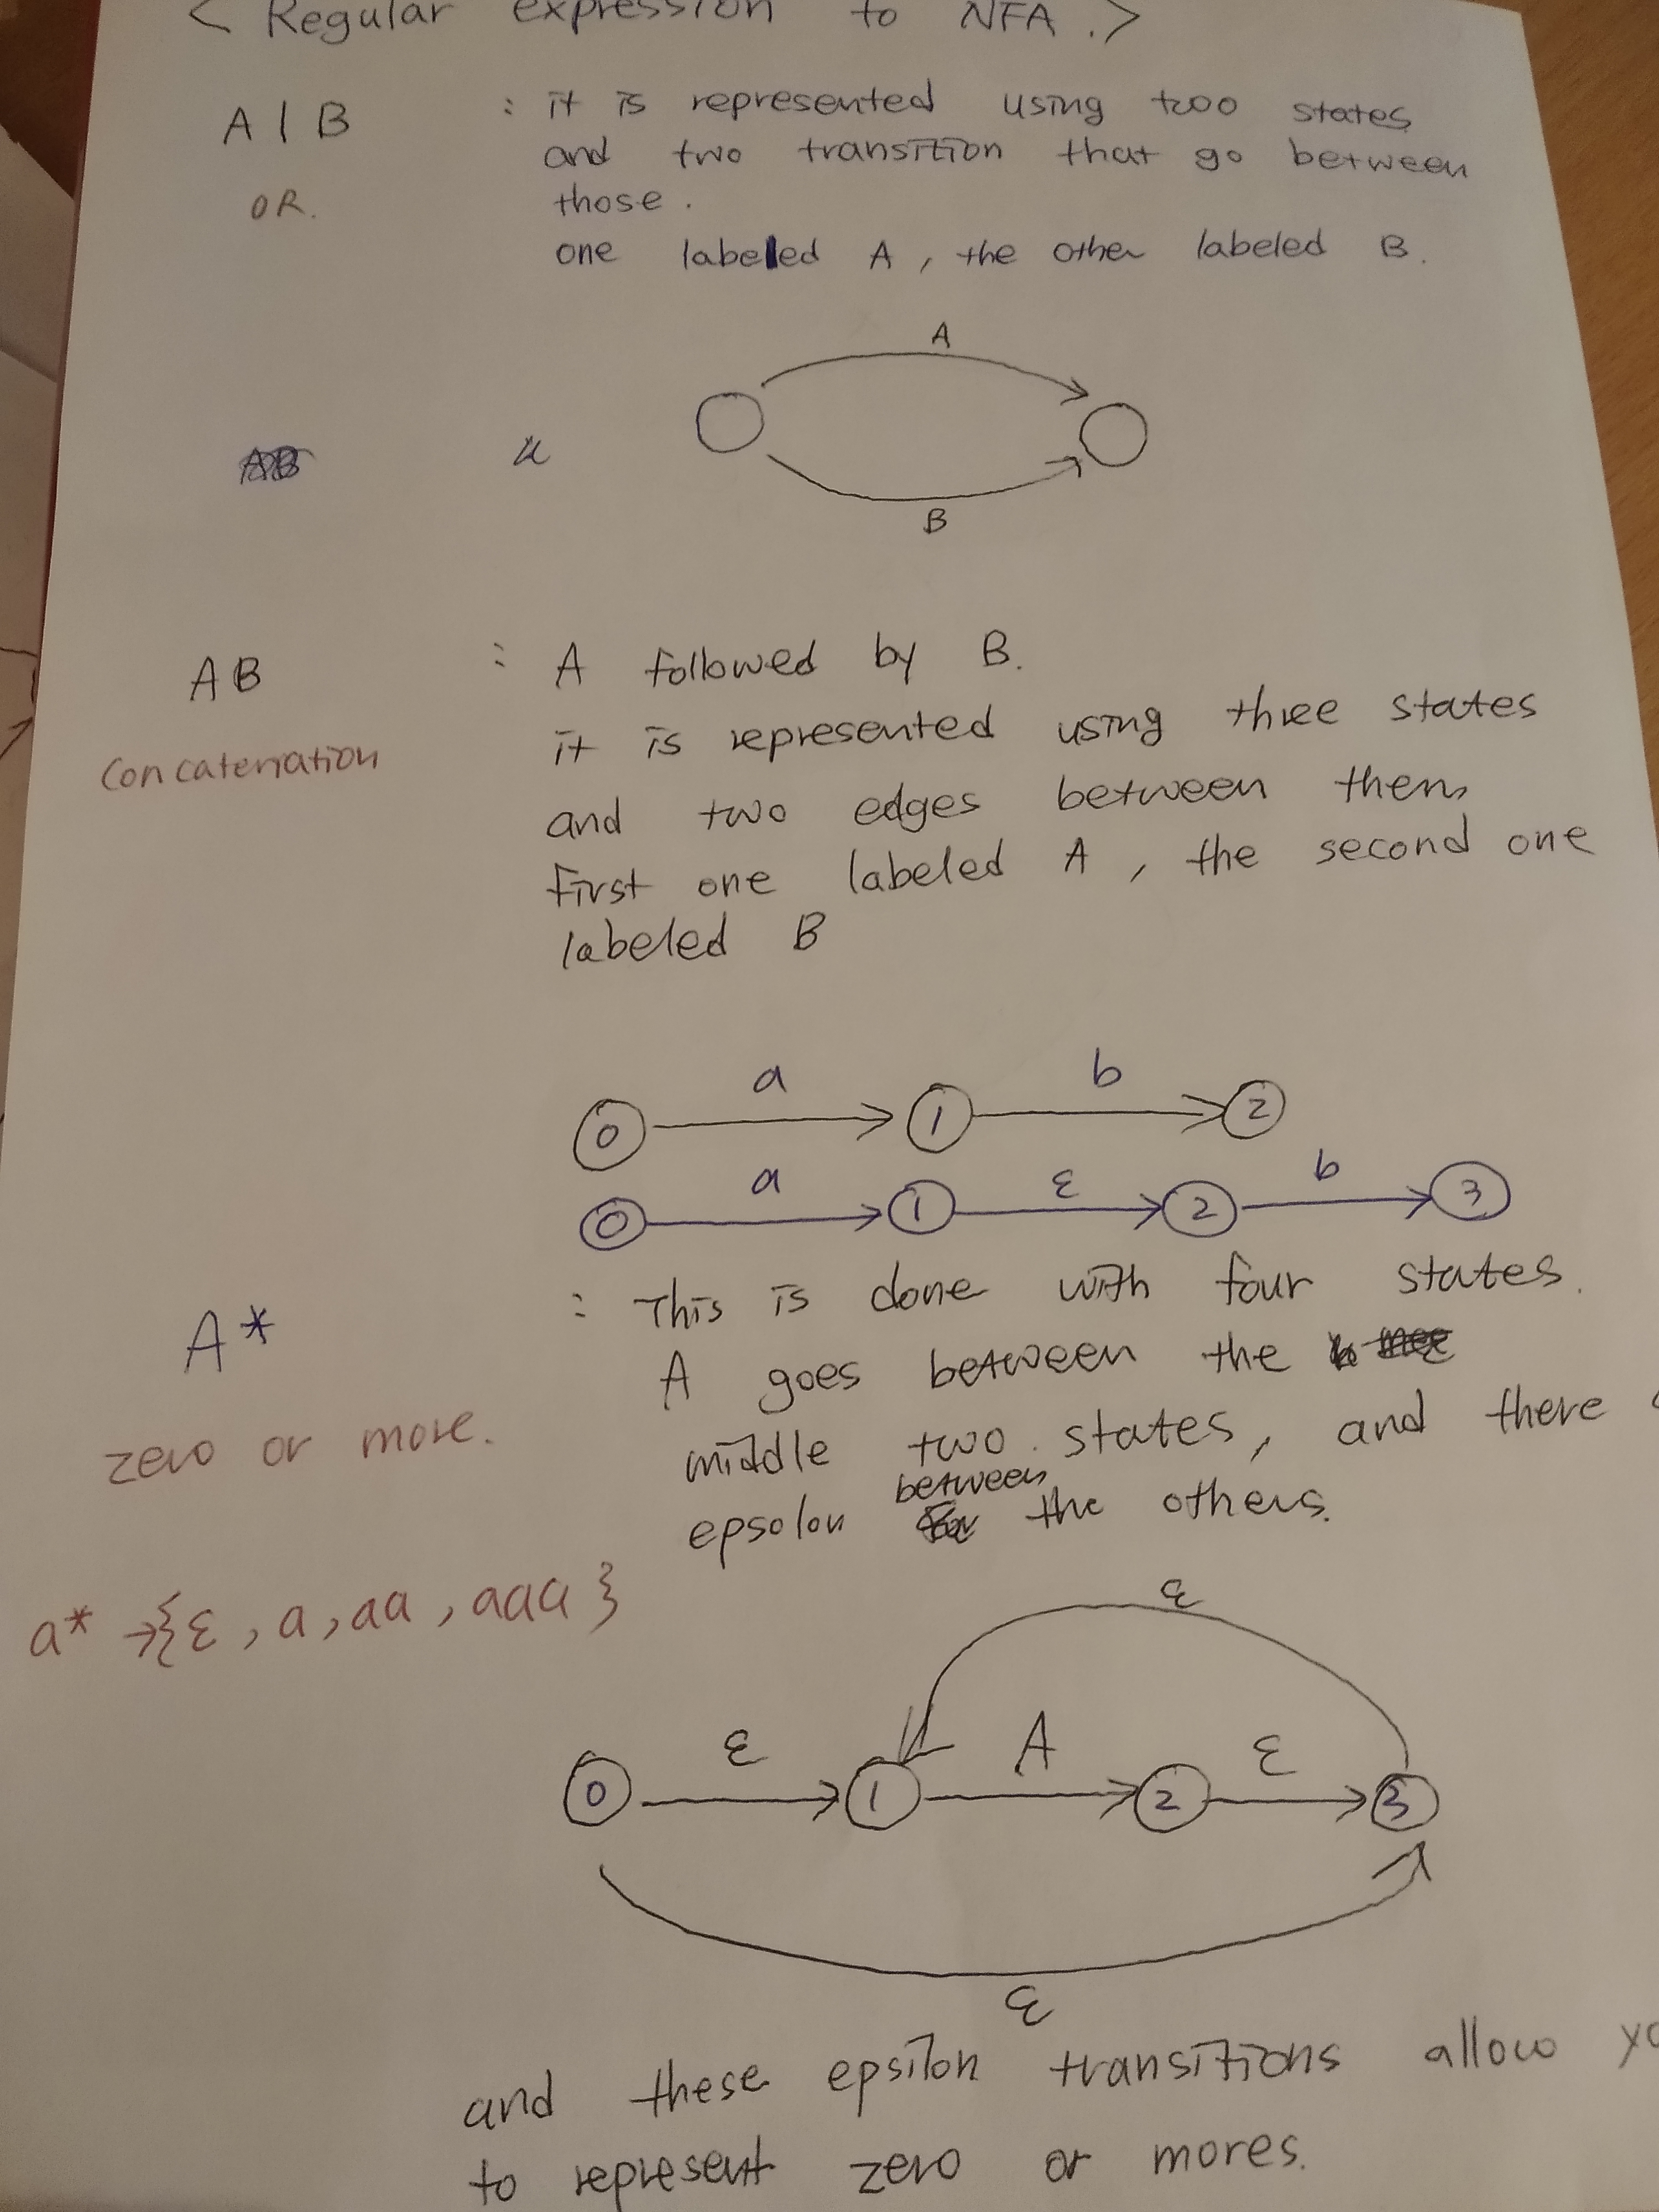 < Regular expression to NFA .>
A | B : it is represented using two states
and two transition that go between
OR. those .
one labeled A , the other labeled B .
A
B
AB : A followed by B.
it is represented using three states
Concatenation
and two edges between them
First one labeled A , the second one
labeled B
a b
0 1 2
a ε b
0 1 2 3
A* : This is done with four states.
A goes between the
zero or more. middle two states, and there
between
epsolon the others.
a* →{ε , a , aa , aaa }
ε
ε A ε
0 1 2 3
ε
and these epsilon transitions allow
to represent zero or mores.